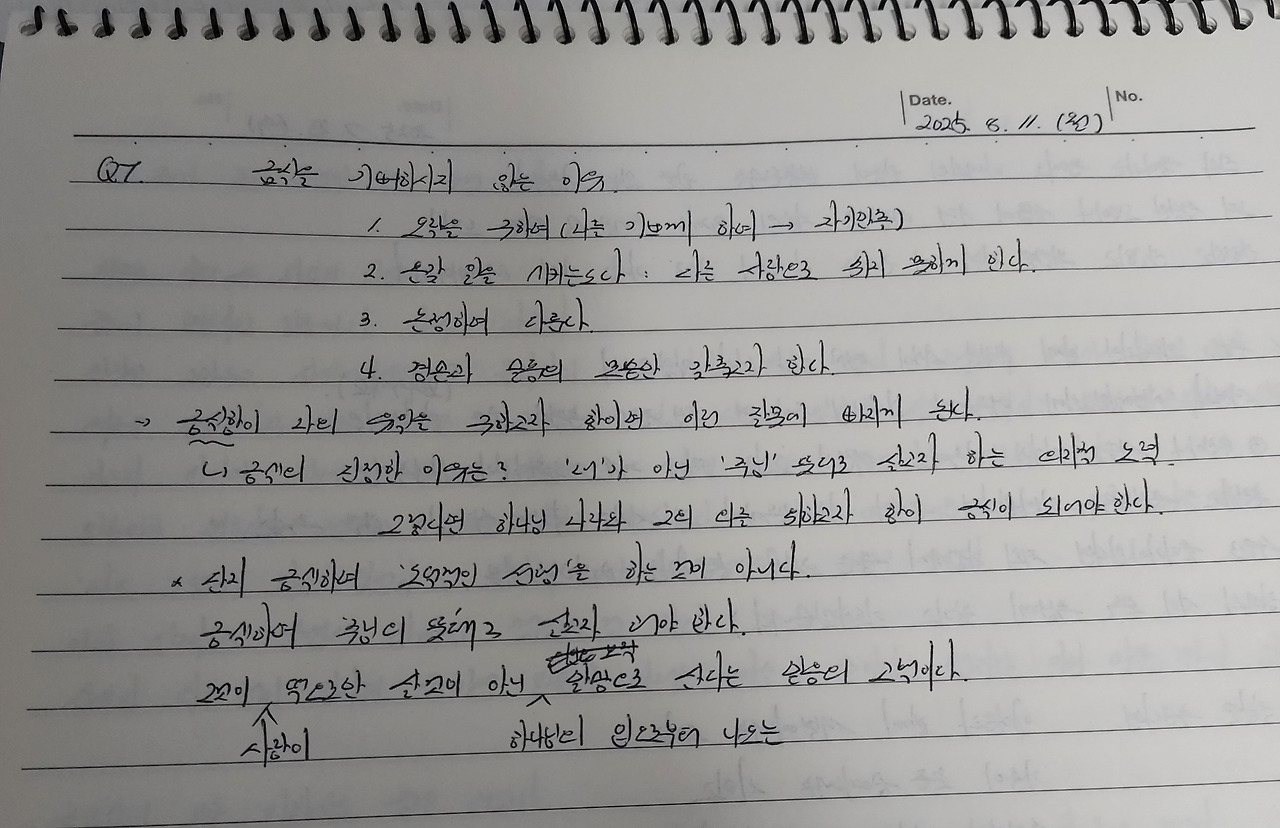 Date. 2025. 8. 11. (월) No.
QT. 금식을 기뻐하시지 않는 이유.
1. 오락을 구하여 (나를 기쁘게 하여 → 자기만족)
2. 온갖 일을 시키는도다 : 다른 사람으로 쉬지 못하게 한다.
3. 논쟁하며 다툰다.
4. 겸손과 슬픔의 모습만 갖추고자 한다.
→ 금식함이 나의 유익을 구하고자 함이면 이런 잘못에 빠지게 된다.
ㄴ 금식의 진정한 이유는? '내'가 아닌 '주님' 뜻대로 살고자 하는 의지적 노력.
그렇다면 하나님 나라와 그의 의를 구하고자 함이 금식이 되어야 한다.
* 단지 금식하며 '도덕적인 선행'을 하는 것이 아니다.
금식하며 주님의 뜻대로 살고자 해야 한다.
그것이 떡으로만 살 것이 아닌 말씀으로 산다는 믿음의 고백이다.
사람이 하나님의 입으로부터 나오는